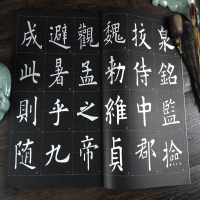 泉銘監撿
挍侍中郡
魏勑維貞
觀孟之帝
避暑乎九
成此則随